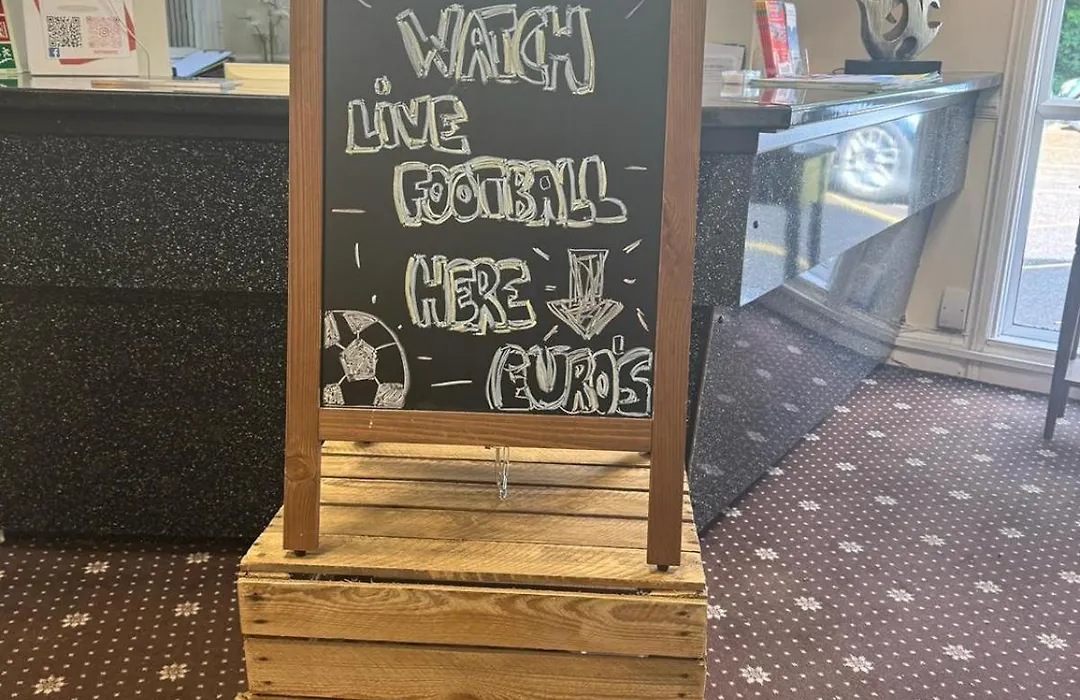 WATCH
LiVE
FOOTBALL
HERE
EURO'S